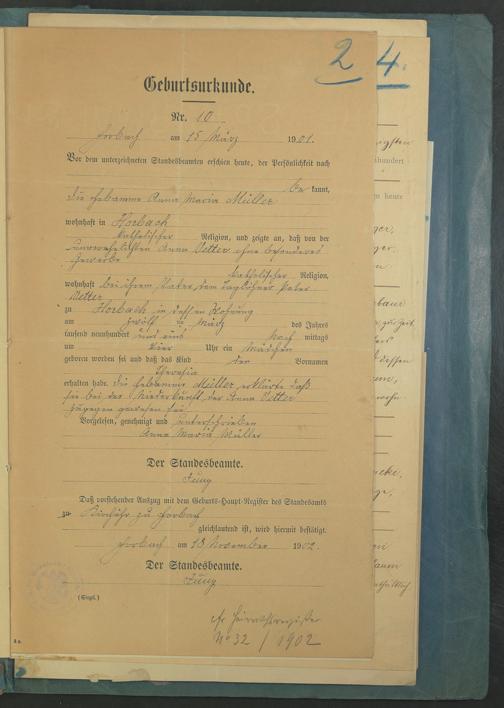 2 4.
Geburtsurkunde.
Nr. 10
Horbach am 15 März 1901.
Vor dem unterzeichneten Standesbeamten erschien heute, der Persönlichkeit nach
be kannt,
die Hebamme Anna Maria Müller
wohnhaft in Horbach
katholischer Religion, und zeigte an, daß von der
unverehelichten Anna Vetter ohne besonderes
Gewerbe
katholischer Religion,
wohnhaft bei ihrem Vater, dem Taglöhner Peter
Vetter
zu Horbach in dessen Wohnung
am zwölften März des Jahres
tausend neunhundert und eins Nach mittags
um vier Uhr ein Mädchen
geboren worden sei und daß das Kind den Vornamen
Theresia
erhalten habe. Die Hebamme Müller erklärte daß
sie bei der Niederkunft der Anna Vetter
zugegen gewesen sei
Vorgelesen, genehmigt und unterschrieben
Anna Maria Müller
Der Standesbeamte.
Daß vorstehender Auszug mit dem Geburts-Haupt-Register des Standesamts
zu Horbach
gleichlautend ist, wird hiermit bestätigt.
Horbach am 18 November 1902.
Der Standesbeamte.
(Siegel.)
Heirathsregister
No 32 / 1902